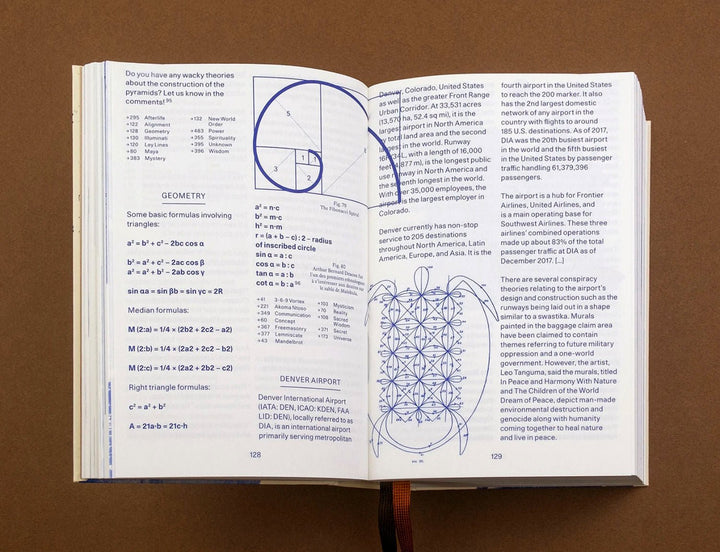 Do you have any wacky theories
about the construction of the
pyramids? Let us know in the
comments! 95
+295 Afterlife
+122 Alignment
+128 Geometry
+130 Illuminati
+120 Ley Lines
+60 Maya
+383 Mystery
+132 New World
Order
+463 Power
+355 Spirituality
+395 Unknown
+396 Wisdom
GEOMETRY
Some basic formulas involving
triangles:
a² = b² + c² − 2bc cos α
b² = a² + c² − 2ac cos β
a² = a² + b² − 2ab cos γ
sin αa = sin βb = sin γc = 2R
Median formulas:
M (2:a) = 1/4 × (2b2 + 2c2 − a2)
M (2:b) = 1/4 × (2a2 + 2c2 − b2)
M (2:c) = 1/4 × (2a2 + 2b2 − c2)
Right triangle formulas:
c² = a² + b²
A = 21a·b = 21c·h
5
3
1
1
2
Fig. 79
The Fibonacci Spiral
a² = n·c
b² = m·c
h² = n·m
r = (a + b − c) : 2 – radius
of inscribed circle
sin α = a : c
cos α = b : c
tan α = a : b
cot α = b : a 96
Fig. 80
+41 3-6-9 Vortex
+221 Akoma Ntoso
+349 Communication
+60 Concept
+367 Freemasonry
+377 Lemniscate
+43 Mandelbrot
+150 Mysticism
+70 Reality
+108 Sacred
Wisdom
+371 Secret
+173 Universe
DENVER AIRPORT
Denver International Airport
(IATA: DEN, ICAO: KDEN, FAA
LID: DEN), locally referred to as
DIA, is an international airport
primarily serving metropolitan
128
Denver, Colorado, United States
as well as the greater Front Range
Urban Corridor. At 33,531 acres
(13,570 ha, 52.4 sq mi), it is the
largest airport in North America
by total land area and the second
largest in the world. Runway
16R/34L, with a length of 16,000
feet (4,877 m), is the longest public
use runway in North America and
the seventh longest in the world.
With over 35,000 employees, the
airport is the largest employer in
Colorado.
Denver currently has non-stop
service to 205 destinations
throughout North America, Latin
America, Europe, and Asia. It is the
fourth airport in the United States
to reach the 200 marker. It also
has the 2nd largest domestic
network of any airport in the
country with flights to around
185 U.S. destinations. As of 2017,
DIA was the 20th busiest airport
in the world and the fifth busiest
in the United States by passenger
traffic handling 61,379,396
passengers.
The airport is a hub for Frontier
Airlines, United Airlines, and
is a main operating base for
Southwest Airlines. These three
airlines' combined operations
made up about 83% of the total
passenger traffic at DIA as of
December 2017. [...]
There are several conspiracy
theories relating to the airport's
design and construction such as the
runways being laid out in a shape
similar to a swastika. Murals
painted in the baggage claim area
have been claimed to contain
themes referring to future military
oppression and a one-world
government. However, the artist,
Leo Tanguma, said the murals, titled
In Peace and Harmony With Nature
and The Children of the World
Dream of Peace, depict man-made
environmental destruction and
genocide along with humanity
coming together to heal nature
and live in peace.
129